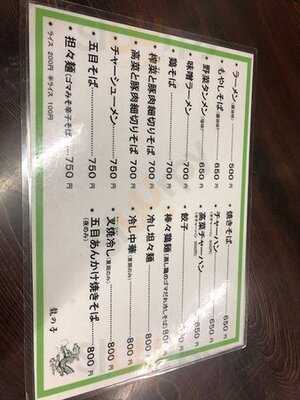 ラーメン(醤油味) 500円
もやしそば(醤油味) 650円
野菜タンメン(塩味) 650円
味噌ラーメン 700円
鶏そば 700円
搾菜と豚肉細切りそば 700円
高菜と豚肉細切りそば 700円
チャーシューメン 750円
五目そば 750円
担々麺(ゴマみそ辛子そば) 750円
ライス 200円 半ライス 100円
焼きそば 650円
チャーハン 650円
高菜チャーハン 650円
餃子
棒々鶏麺(蒸し鶏のゴマだれ冷しそば) 800円
冷し坦々麺 800円
冷し中華(夏期のみ) 800円
叉焼冷し(夏期のみ) 800円
五目あんかけ焼きそば 800円
(夜のみ)
龍の子